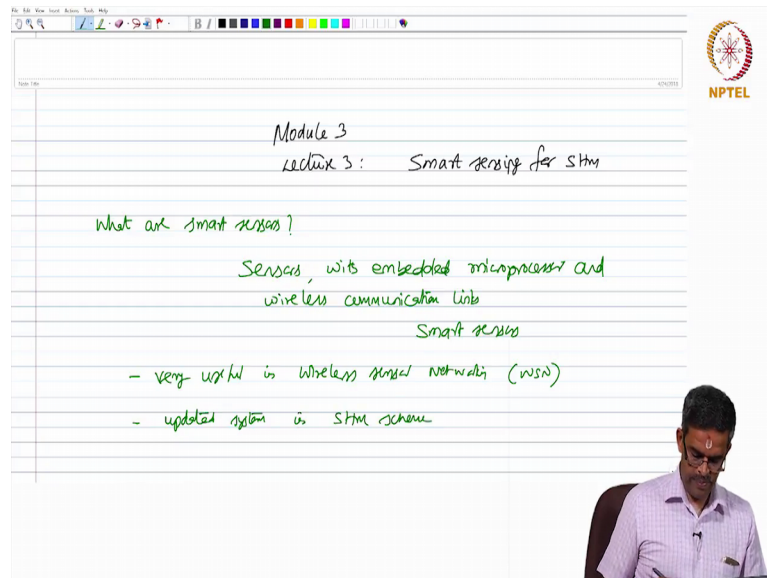 File Edit View Insert Actions Tools Help
B I
NPTEL
Note Title
4/24/2018
Module 3
Lecture 3: Smart sensing for SHM
What are smart sensors?
Sensors, with embedded microprocessor and
wireless communication links
Smart sensors
- very useful in Wireless sensor Networks (WSN)
- updated system in SHM scheme